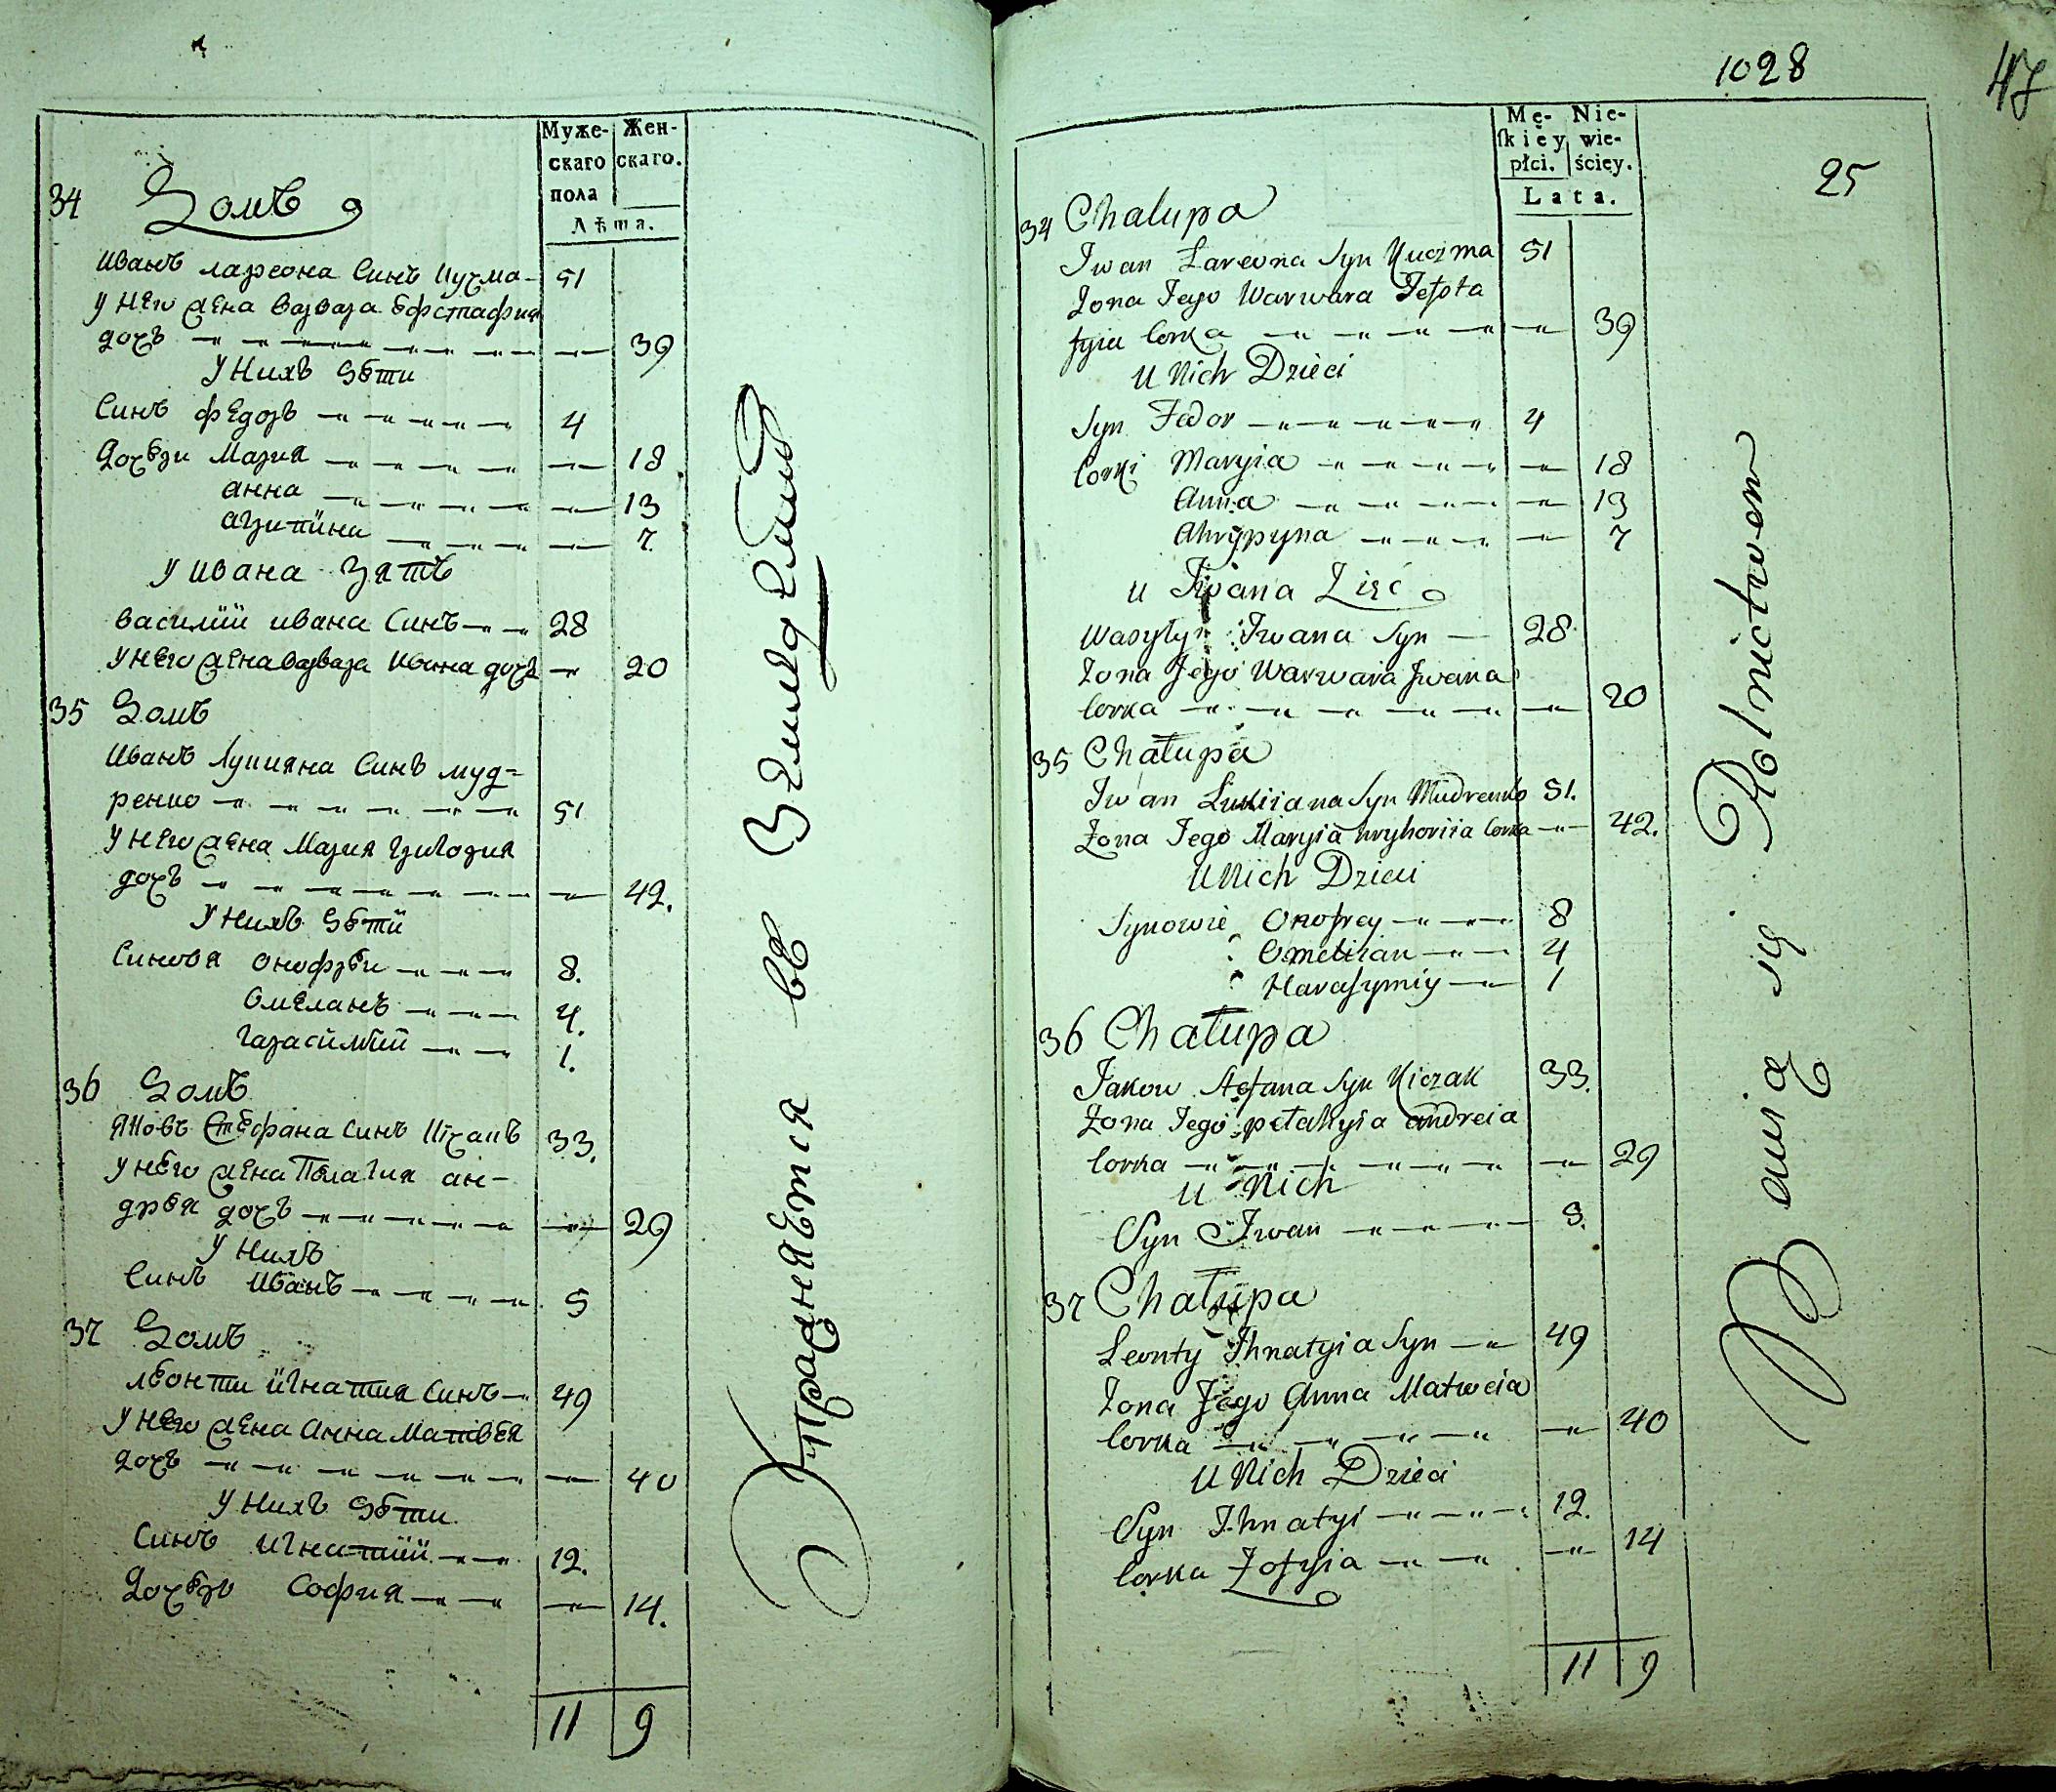 Муже- Жен-
скаго скаго.
пола
Лѣта.
34 Домъ
Иванъ лариона Синъ Кучма 51
у него жена варвара Евстафия
дочь 39
у нихъ дѣти
Синъ федоръ 4
дочѣри Мария 18
анна 13
агрипина 7
у ивана зять
василий ивана Синъ 28
у него жена варвара ивана дочь 20
35 Домъ
иванъ лукияна Синъ муд=
ренко 51
у него жена Мария григория
дочь 42.
у нихъ дѣти
Синовя онофрѣи 8.
Омеланъ 4.
гарасимѣй 1.
36 Домъ
Яковъ Стефана Синъ Кічакъ 33.
у него жена Пелагия ан-
дрѣя дочь 29
у нихъ
Синъ иванъ 5
37 Домъ
лѣонти игнатия Синъ 49
у него жена Анна Матвѣя
дочь 40
у нихъ дѣти
Синъ игнатий 12.
дочѣрь София 14.
11 9
Упражняѣтся въ Земледелии
1028
47
25
Mę- Nie-
ſkiey wie-
płci. ściey.
Lata.
34 Chalupa
Iwan Lareona Syn Kuczma 51
Zona Jego Warwara Jefsta
fyia Corka 39
u Nich Dzieci
Syn Fedor 4
Corki Maryia 18
Anna 13
Ahrypyna 7
u Iwana Zięć
Wasyłyi Iwana Syn 28
Zona Jego Warwara Iwana
Corka 20
35 Chałupa
Iwan Lukiiana Syn Mudrenko 51.
Zona Jego Maryia hryhoriia Corka 42.
u Nich Dzieci
Synowie Onofrey 8
Omeliian 4
Harasymiy 1
36 Chałupa
Jakow Stefana Syn Kiczak 33.
Zona Jego pełahyia andreia
Corka 29
u Nich
Syn Iwan 5.
37 Chałupa
Leonty Ihnatyia Syn 49
Zona Jego Anna Matweia
Corka 40
u Nich Dzieci
Syn Ihnatyi 12.
Corka Zofyia 14
11 9
Bawią się Rolnictwem